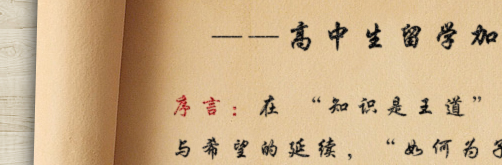 ——高中生留学加
序言：在“知识是王道”
与希望的延续，“如何为